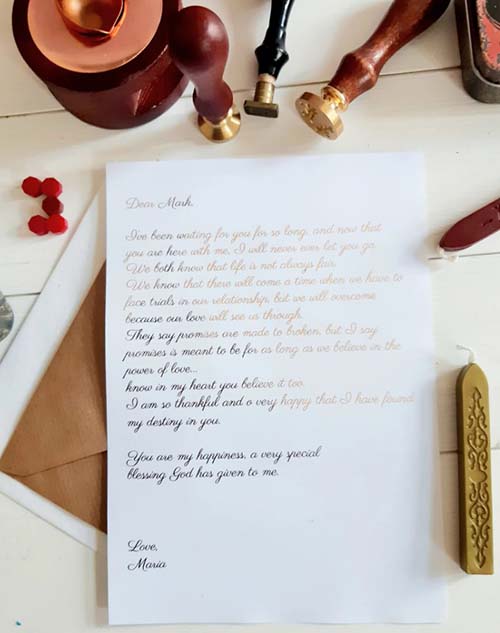 Dear Mark,
I've been waiting for you for so long, and now that
you are here with me, I will never ever let you go.
We both know that life is not always fair.
We know that there will come a time when we have to
face trials in our relationship, but we will overcome
because our love will see us through.
They say promises are made to broken, but I say
promises is meant to be for as long as we believe in the
power of love...
know in my heart you believe it too.
I am so thankful and o very happy that I have found
my destiny in you.
You are my happiness, a very special
blessing God has given to me.
Love,
Maria